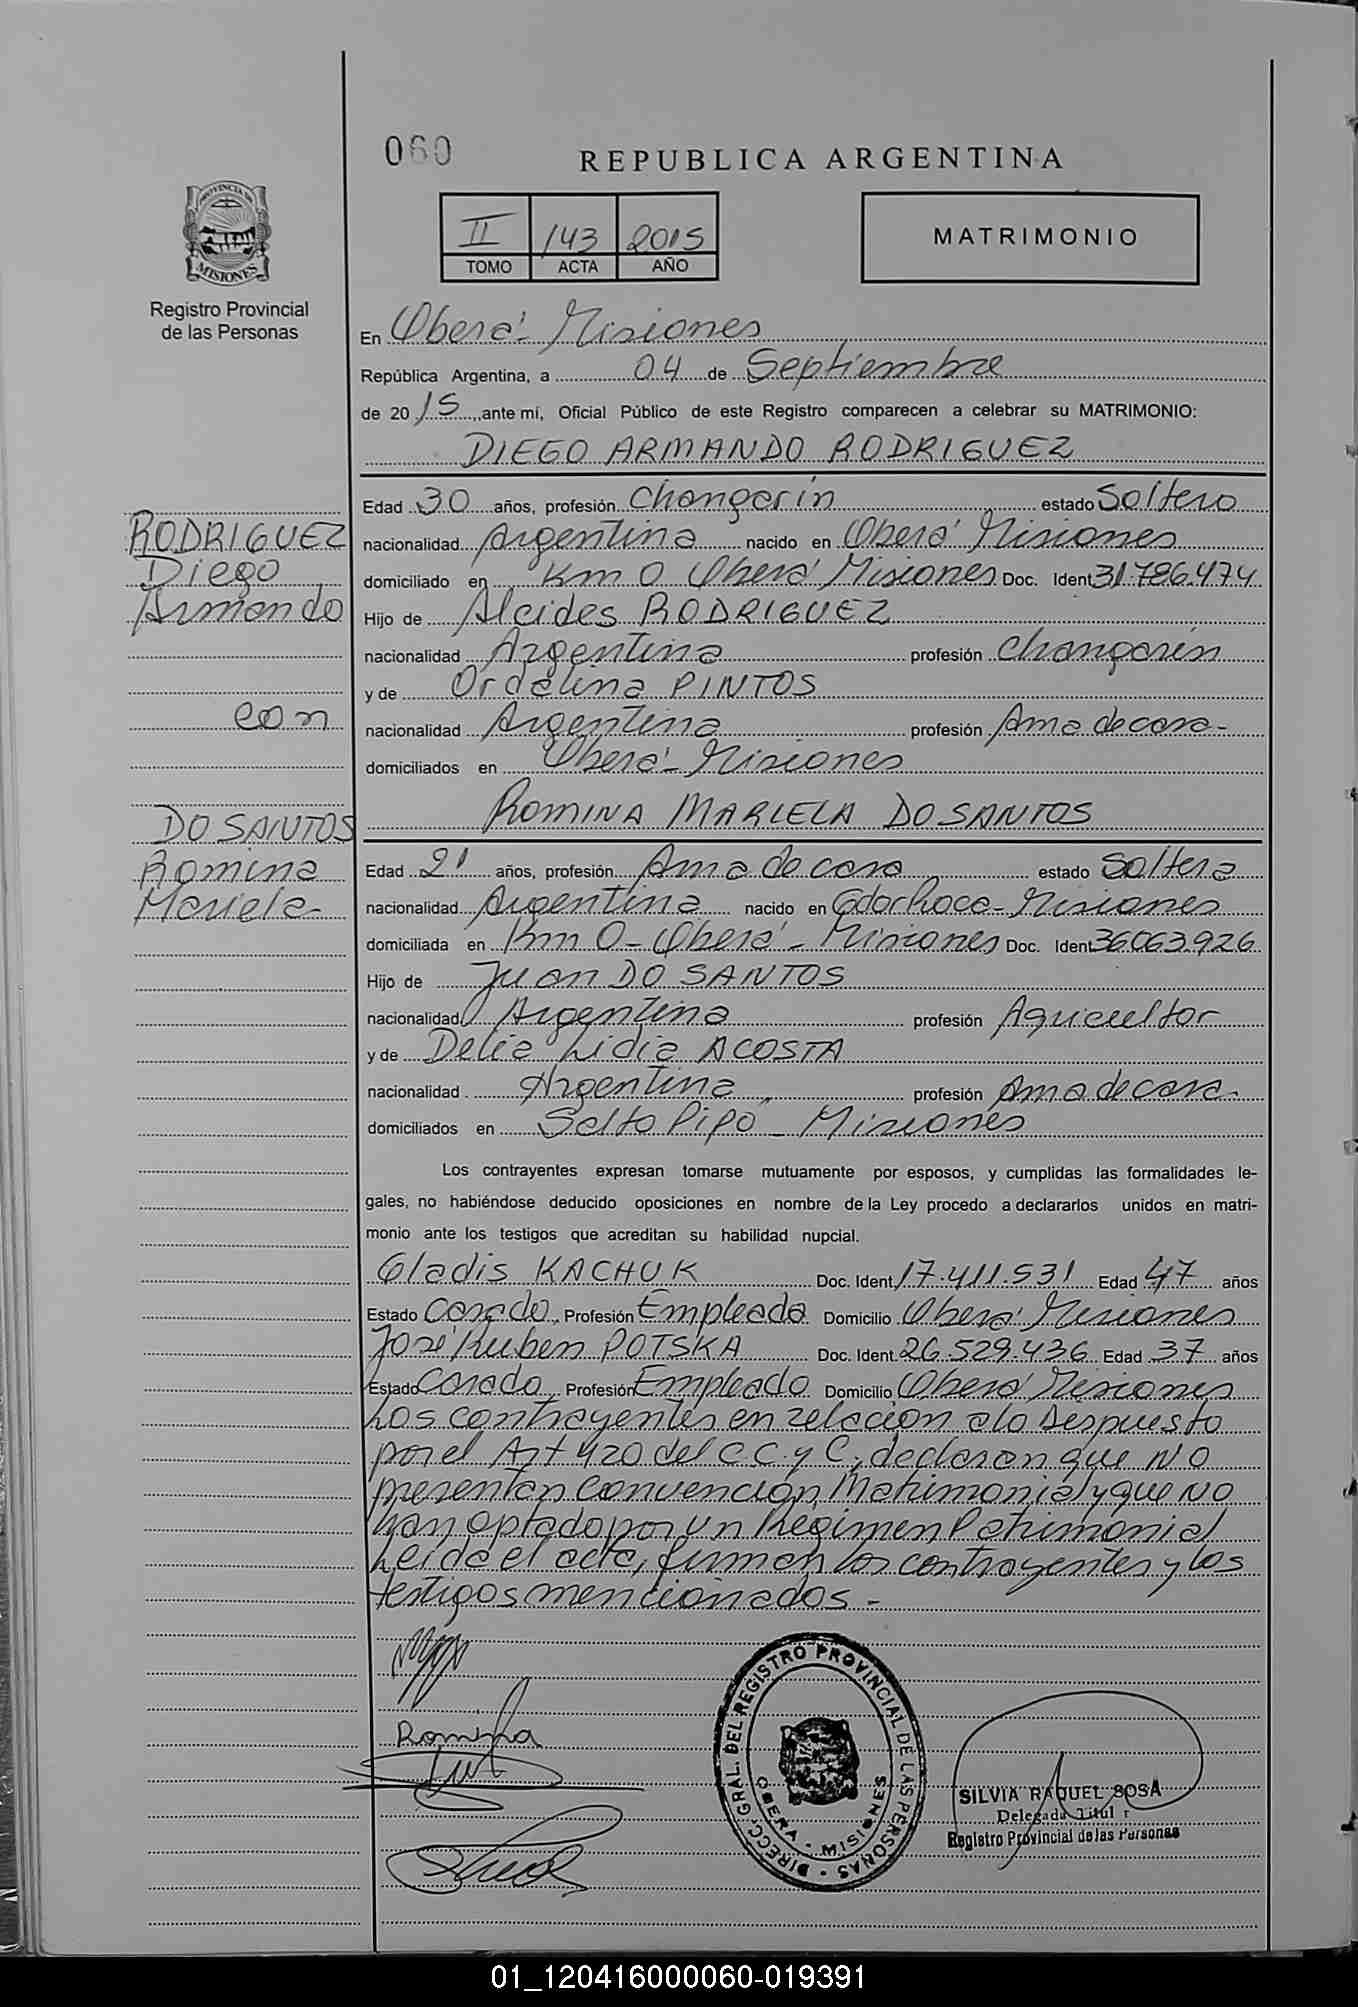 060
REPUBLICA ARGENTINA
PROVINCIA DE
MISIONES
Registro Provincial
de las Personas
II 143 2015
TOMO ACTA AÑO
MATRIMONIO
En Oberá - Misiones
República Argentina, a 04 de Septiembre
de 2015, ante mí, Oficial Público de este Registro comparecen a celebrar su MATRIMONIO:
DIEGO ARMANDO RODRIGUEZ
RODRIGUEZ
Diego
Armando
con
DO SANTOS
Romina
Mariela
Edad 30 años, profesión Changarin estado Soltero
nacionalidad Argentina nacido en Oberá Misiones
domiciliado en Km 0 Oberá Misiones Doc. Ident 31.786.474
Hijo de Alcides RODRIGUEZ
nacionalidad Argentina profesión Changarin
y de Ordelina PINTOS
nacionalidad Argentina profesión Ama de casa-
domiciliados en Oberá - Misiones
ROMINA MARIELA DO SANTOS
Edad 21 años, profesión Ama de casa estado Soltera
nacionalidad Argentina nacido en Misiones
domiciliada en Km 0 - Oberá - Misiones Doc. Ident 36.063.926
Hijo de Juan DO SANTOS
nacionalidad Argentina profesión Agricultor
y de Delia Lidia ACOSTA
nacionalidad Argentina profesión Ama de casa-
domiciliados en Salto Pipó - Misiones
Los contrayentes expresan tomarse mutuamente por esposos, y cumplidas las formalidades le-
gales, no habiéndose deducido oposiciones en nombre de la Ley procedo a declararlos unidos en matri-
monio ante los testigos que acreditan su habilidad nupcial.
Gladis KACHUK Doc. Ident 17.411.531 Edad 47 años
Estado Casado, Profesión Empleada Domicilio Oberá Misiones
José Ruben POTSKA Doc. Ident 26.529.436 Edad 37 años
Estado Casado, Profesión Empleado Domicilio Oberá Misiones
Los contrayentes en relacion a lo Despuesto
por el Art 420 del C.C. y C, declaran que NO
presentan Convención Matrimonial y que NO
han optado por un Régimen Patrimonial
Leida el acta, firman los contrayentes y los
testigos mencionados -
Romina
DIRECC. GRAL. DEL REGISTRO PROVINCIAL DE LAS PERSONAS
OBERA - MISIONES
SILVIA RAQUEL SOSA
Delegada Titul r
Registro Provincial de las Personas
01_120416000060-019391